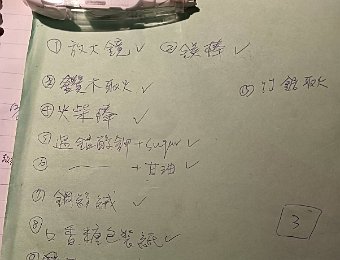 ① 放大鏡 ✓ ② 鎂棒 ✓
③ 鑽木取火 ✓
④ 火柴棒 ✓
⑤ 過錳酸鉀 + sugar ✓
⑥ 〃 — — — + 甘油 ✓
⑦ 鋼絲絨 ✓
⑧ 口香糖包裝紙 ✓
⑮ 竹鋸取火
3